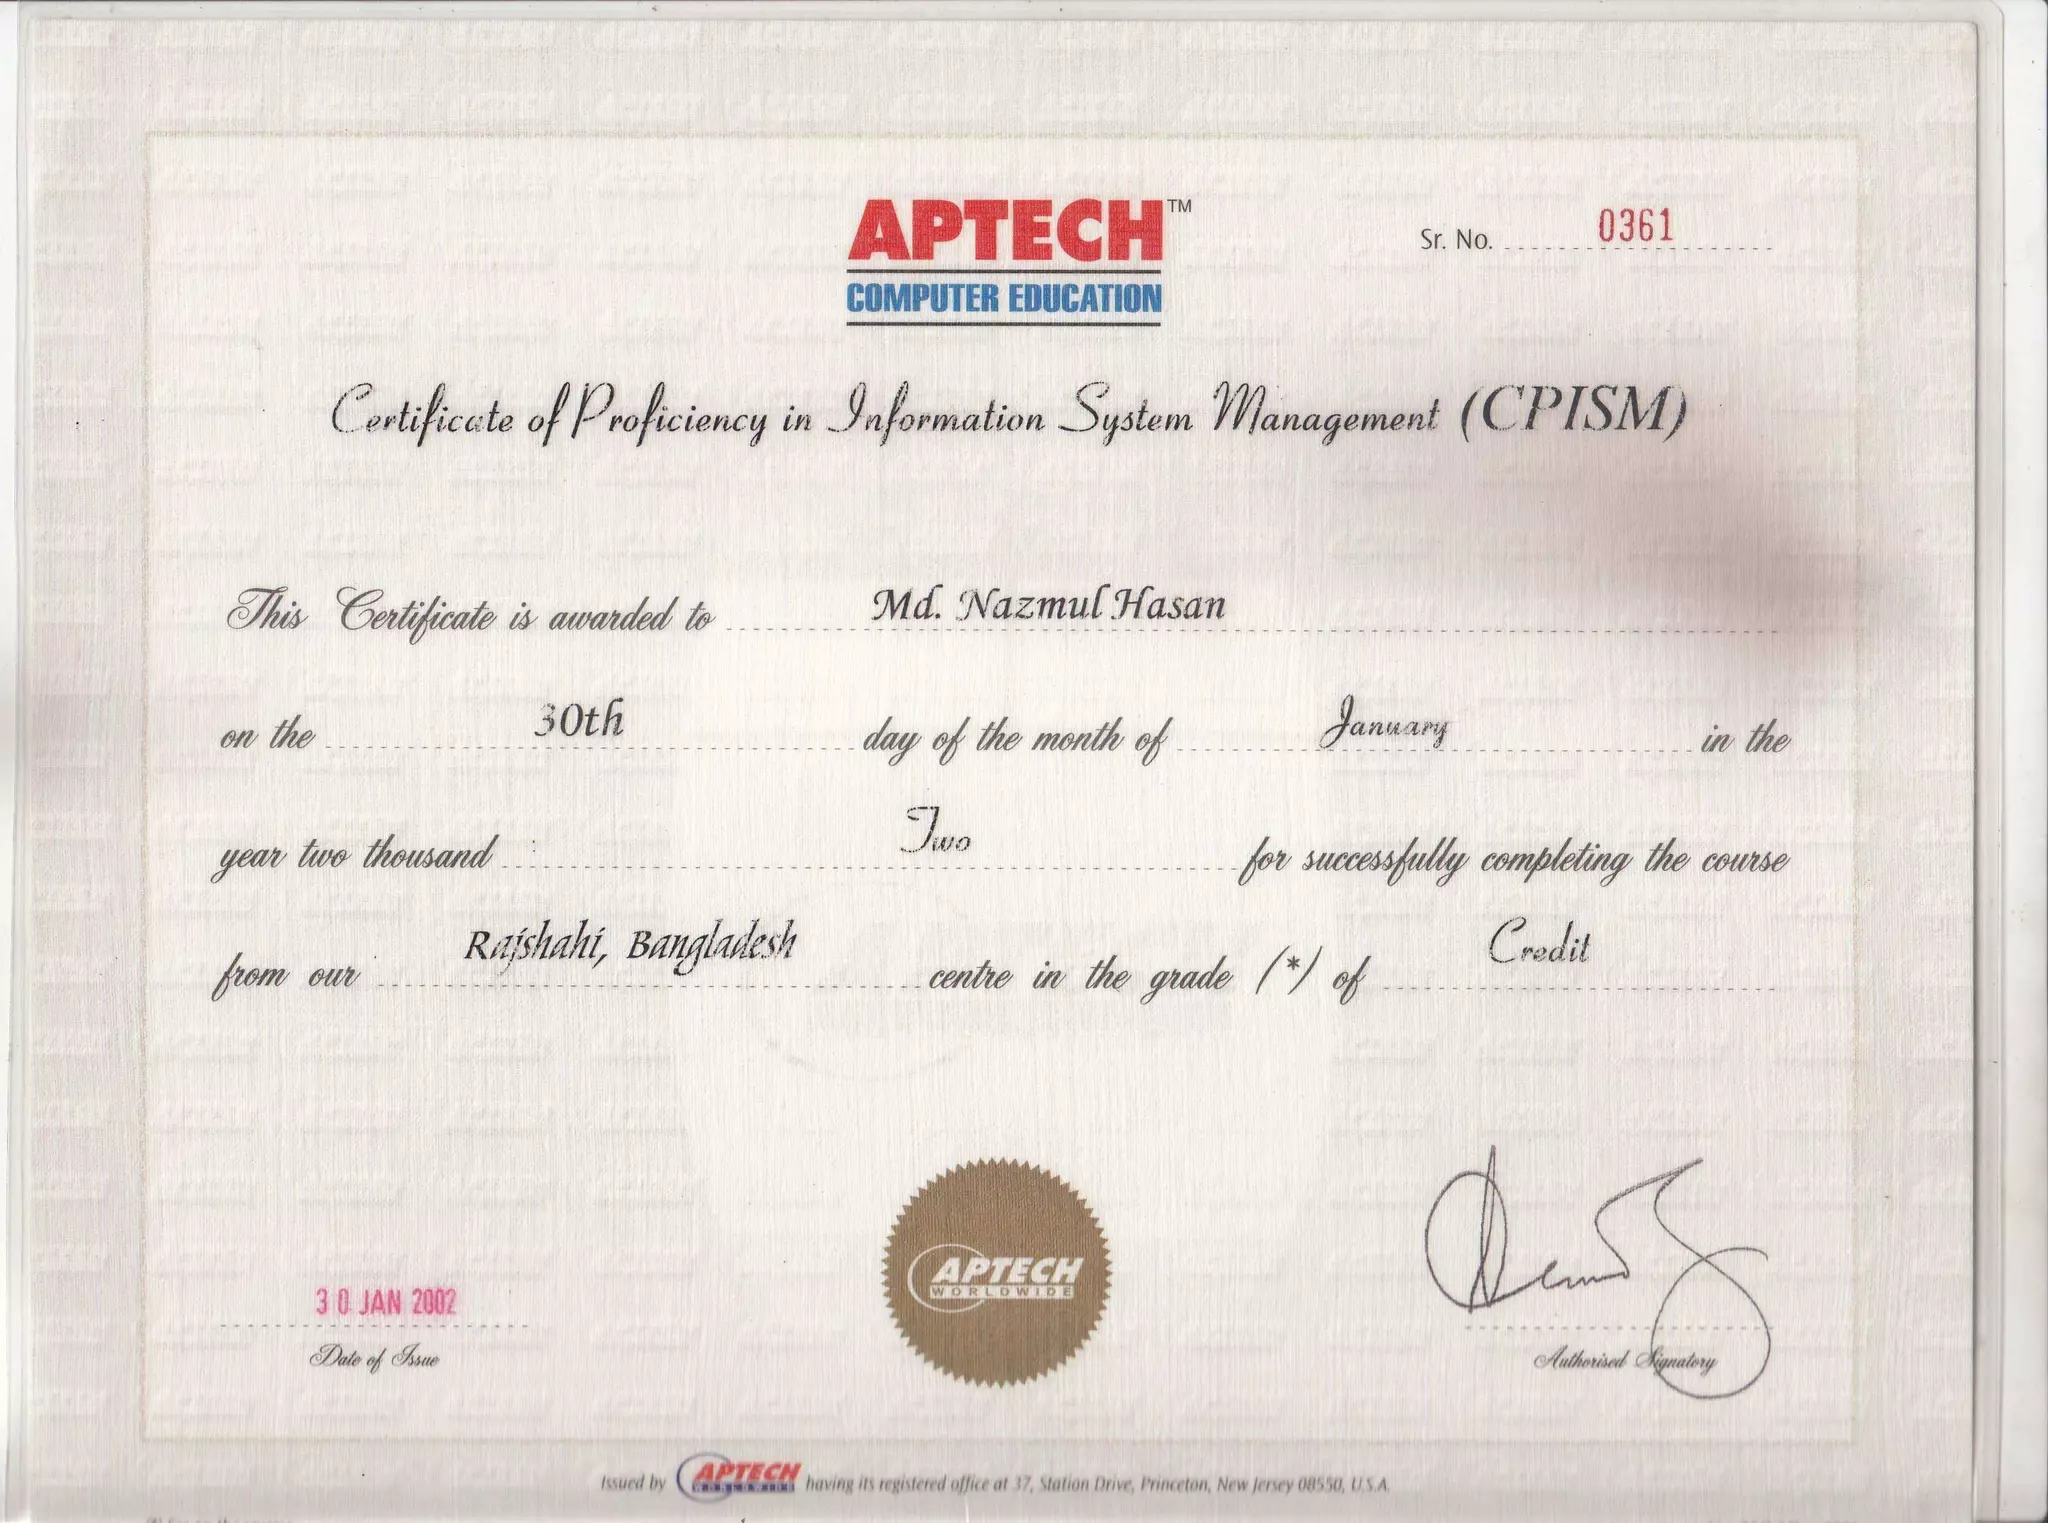 APTECH™
COMPUTER EDUCATION
Sr. No. 0361
Certificate of Proficiency in Information System Management (CPISM)
This Certificate is awarded to Md. Nazmul Hasan
on the 30th day of the month of January in the
year two thousand Two for successfully completing the course
from our Rajshahi, Bangladesh centre in the grade (*) of Credit
APTECH
WORLDWIDE
30 JAN 2002
Date of Issue
Authorised Signatory
Issued by APTECH WORLDWIDE having its registered office at 37, Station Drive, Princeton, New Jersey 08550, U.S.A.